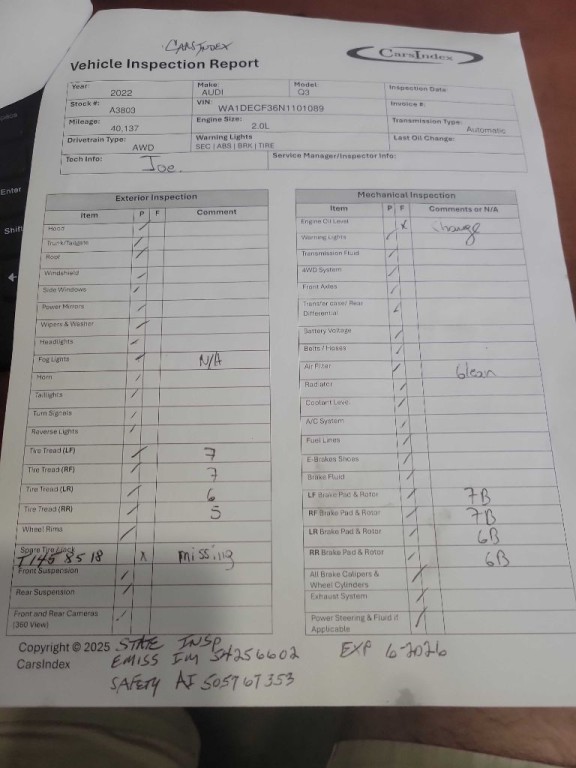 CARSINDEX
CarsIndex
Vehicle Inspection Report
Year: 2022 Make: AUDI Model: Q3 Inspection Date:
Stock #: A3803 VIN: WA1DECF36N1101089 Invoice #:
Mileage: 40,137 Engine Size: 2.0L Transmission Type: Automatic
Drivetrain Type: AWD Warning Lights SEC | ABS | BRK | TIRE Last Oil Change:
Tech Info: Joe. Service Manager/Inspector Info:
Exterior Inspection
Item P F Comment
Hood
Trunk/Tailgate
Roof
Windshield
Side Windows
Power Mirrors
Wipers & Washer
Headlights
Fog Lights N/A
Horn
Taillights
Turn Signals
Reverse Lights
Tire Tread (LF) 7
Tire Tread (RF) 7
Tire Tread (LR) 6
Tire Tread (RR) 5
Wheel Rims
Spare Tire/Jack X missing
T145 85 18
Front Suspension
Rear Suspension
Front and Rear Cameras
(360 View)
Mechanical Inspection
Item P F Comments or N/A
Engine Oil Level X change
Warning Lights
Transmission Fluid
4WD System
Front Axles
Transfer case/ Rear
Differential
Battery Voltage
Belts / Hoses
Air Filter Clean
Radiator
Coolant Level
A/C System
Fuel Lines
E-Brakes Shoes
Brake Fluid
LF Brake Pad & Rotor 7B
RF Brake Pad & Rotor 7B
LR Brake Pad & Rotor 6B
RR Brake Pad & Rotor 6B
All Brake Calipers &
Wheel Cylinders
Exhaust System
Power Steering & Fluid if
Applicable
Copyright © 2025 STATE INSP
CarsIndex EMISS IM SA256602 EXP 6-2026
SAFETY AI 505767353
Enter
Shift